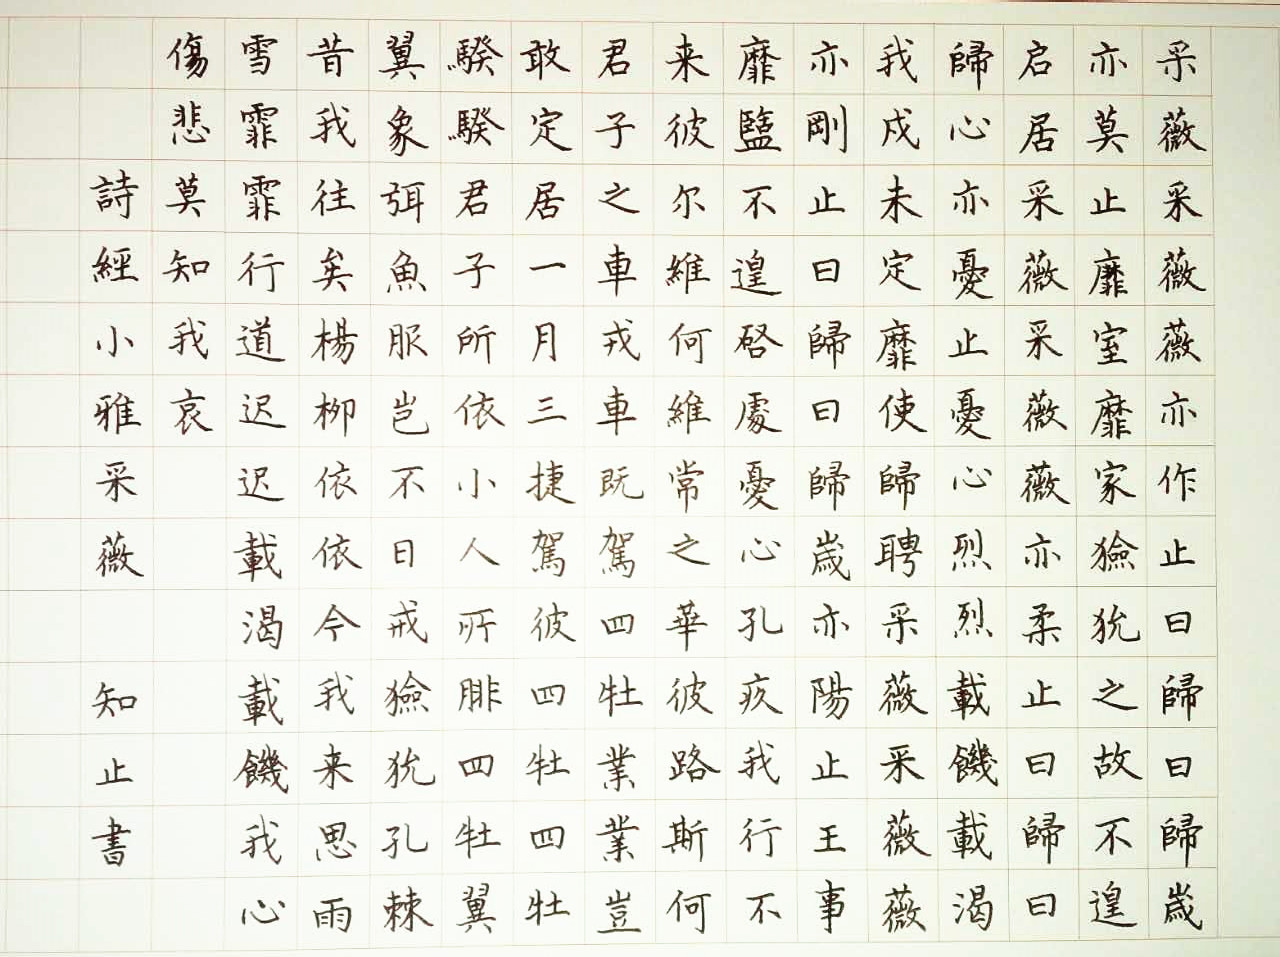 采薇采薇薇亦作止曰歸曰歸歲
亦莫止靡室靡家獫狁之故不遑
启居采薇采薇薇亦柔止曰歸曰
歸心亦憂止憂心烈烈載饑載渴
我戍未定靡使歸聘采薇采薇薇
亦剛止曰歸曰歸歲亦陽止王事
靡盬不遑啓處憂心孔疚我行不
来彼尔維何維常之華彼路斯何
君子之車戎車既駕四牡業業豈
敢定居一月三捷駕彼四牡四牡
騤騤君子所依小人所腓四牡翼
翼象弭魚服岂不日戒獫狁孔棘
昔我往矣楊柳依依今我来思雨
雪霏霏行道迟迟載渴載饑我心
傷悲莫知我哀
詩經小雅采薇 知止書